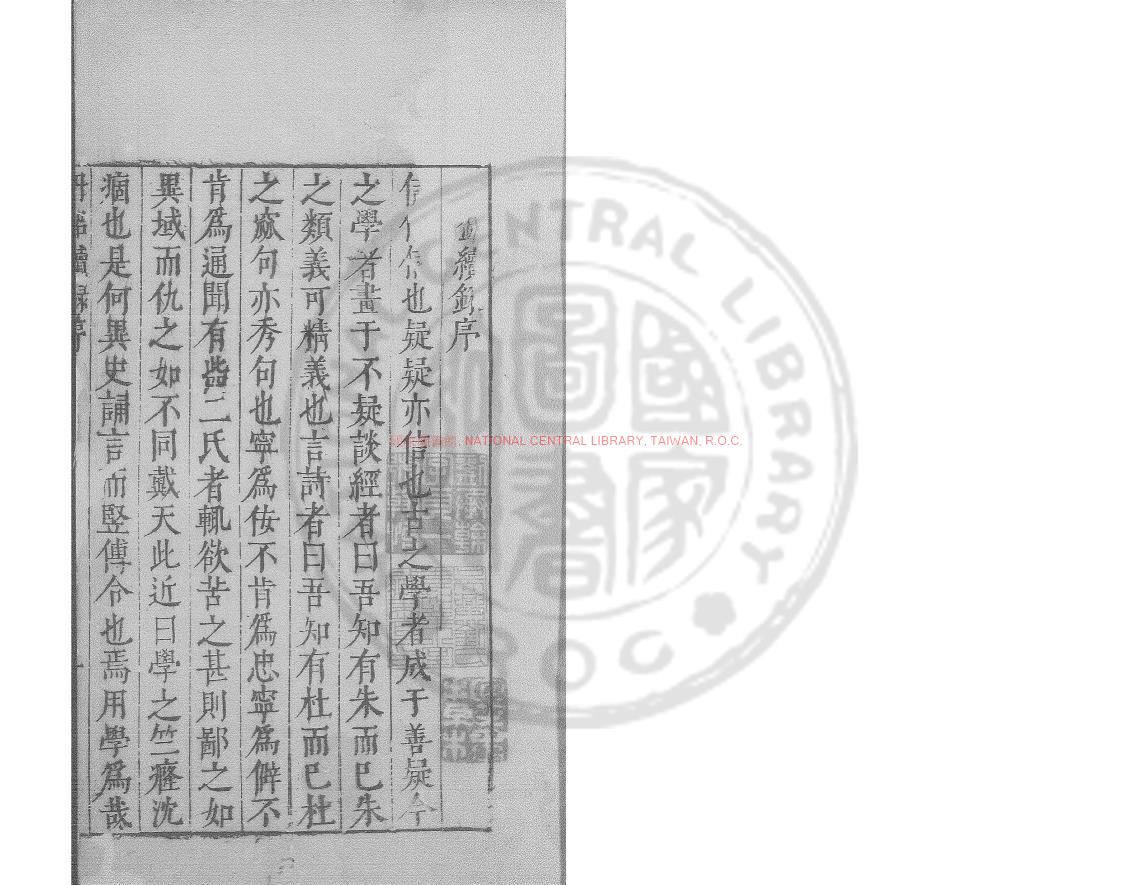 續錄序
信信信也疑疑亦信也古之學者成于善疑今
之學者畫于不疑談經者曰吾知有朱而已朱
之類義可精義也言詩者曰吾知有杜而已杜
之窳句亦秀句也寧為佞不肯為忠寧為僻不
肯為通聞有訾二氏者輒欲苦之甚則鄙之如
異域而仇之如不同戴天此近日學之竺癃沈
痼也是何異史誦言而竪傅令也焉用學為哉
國家圖書館, NATIONAL CENTRAL LIBRARY, TAIWAN, R.O.C.
國家圖書館
CENTRAL LIBRARY
ROC